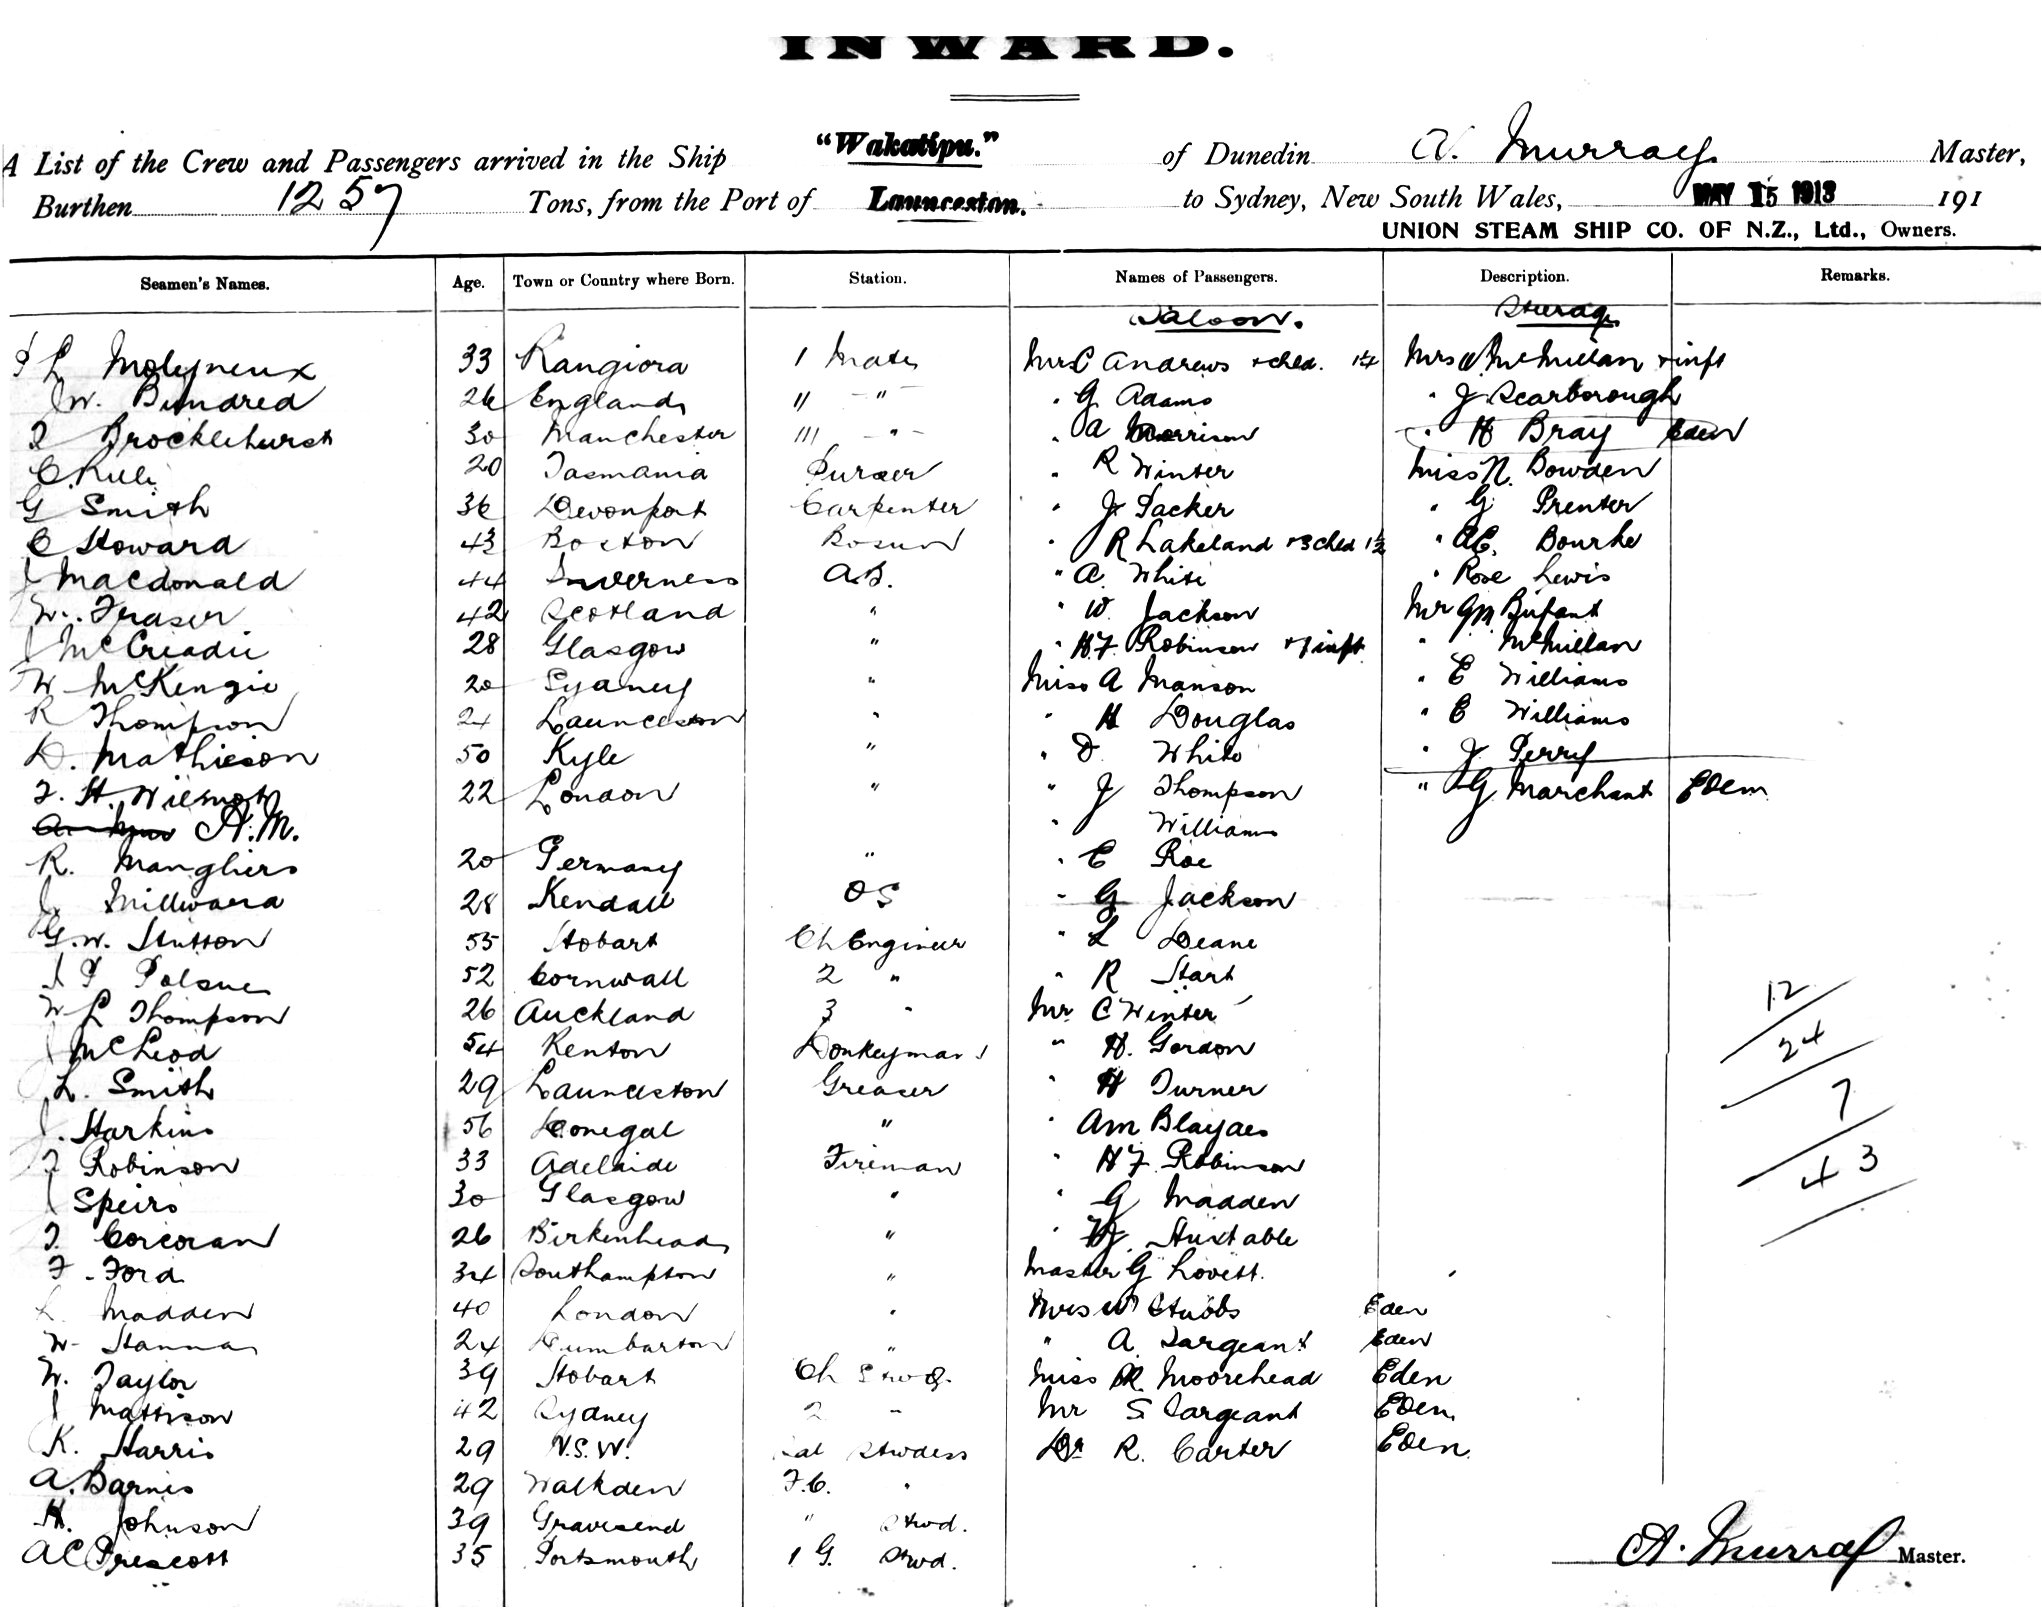 INWARD.
A List of the Crew and Passengers arrived in the Ship "Wakatipu." of Dunedin A. Murray Master,
Burthen 1257 Tons, from the Port of Launceston. to Sydney, New South Wales, MAY 15 1913 191
UNION STEAM SHIP CO. OF N.Z., Ltd., Owners.
Seamen's Names. Age. Town or Country where Born. Station. Names of Passengers. Description. Remarks.
Saloon. Sturage
L Molyneux 33 Rangiora 1 Mate Mrs C Andrews + chld. 1¼ Mrs McMillan + inft
J W. Bundred 26 England " - " - " G Adams " J Scarborough
Brocklehurst 30 Manchester "' - " - " A Morrison " H Bray Eden
C. 20 Tasmania Purser " R Winter Miss N. Bowden
G Smith 36 Devonport Carpenter " J Packer " G Prenter
C Howard 43 Boston Bosun " R Lakeland + 3 chld 1½ " Bourke
J Macdonald 44 Inverness A.B. " A. White " Rose Lewis
W. Fraser 42 Scotland " " W Jackson Mr Bufant
J McCreadie 28 Glasgow " " H.F. Robinson + 1 inft " McMillan
W McKenzie 20 Sydney " Miss A Manson " E Williams
R Thompson 24 Launceston " " H Douglas " E Williams
D. Mathieson 50 Kyle " " D White " J Perry
F. H. Wilmot 22 London " " J Thompson " G Marchant Eden
A.M. " Williams
R. Mangliers 20 Germany " " E Roe
J. Millward 28 Kendall OS " G Jackson
G.W. Hutton 55 Hobart Ch Engineer " L Deane
J P Polsue 52 Cornwall 2 " " R Hart
W L Thompson 26 Auckland 3 " Mr C Winter
J McLeod 54 Renton Donkeyman " H. Gordon 12
L. Smith 29 Launceston Greaser " H Turner 24
J. Harkins 56 Donegal " " A M Blaydes 7
Robinson 33 Adelaide Fireman " H F Robinson 43
J Speirs 30 Glasgow " " G Madden
T. Corcoran 26 Birkenhead " " Huxtable
F. Ford 34 Southampton " Master G Lovett.
L Madden 40 London " Mrs W Stubbs Eden
W Hanna 24 Dumbarton " " A. Sargeant Eden
W. Taylor 39 Hobart Ch Stwd. Miss R. Moorehead Eden
J Mattison 42 Sydney 2 " Mr S Sargeant Eden
K. Harris 29 N.S.W. Sal Stwdess Dr R. Carter Eden
A. Barnes 29 Walkden F.C. "
H. Johnson 39 Gravesend " Stwd.
A C Prescott 35 Portsmouth 1 G. Stwd.
A. Murray Master.